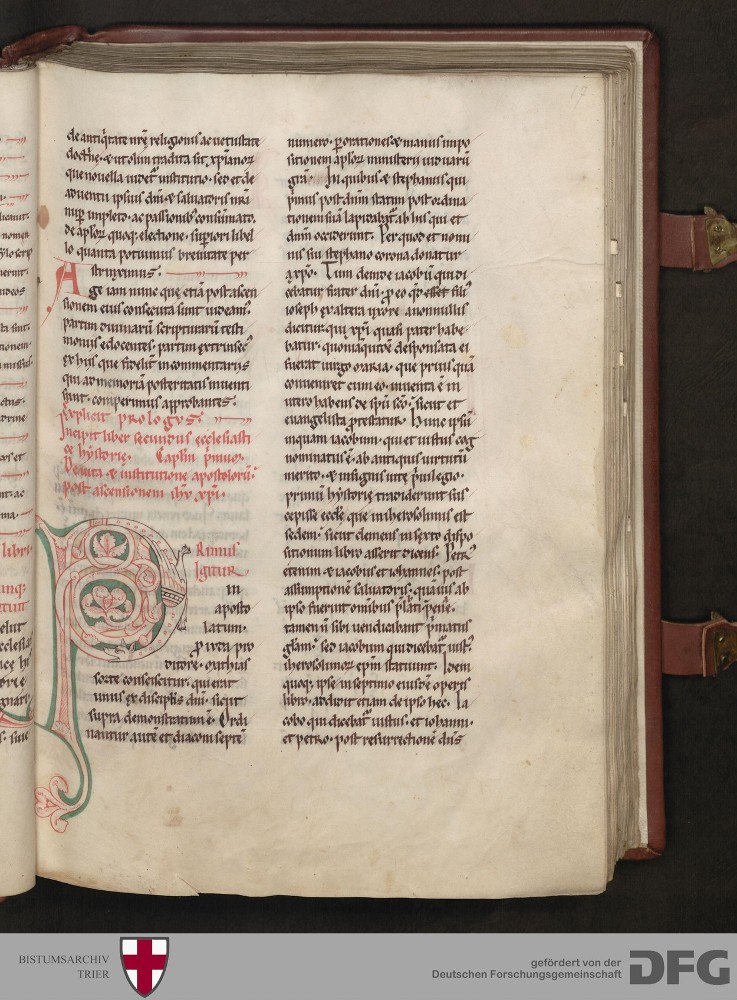 de antiq̇tate nrę religionis ac uetustate
doct̓ne · & ut olim tradita sit xp̄ianoꝝ
que nouella uidet̓ institutio · sed et de
aduentu ipsius dn̄i & saluatoris nr̄i
nup̱ impleto · ac passionib; consūmato.
de apl̓oꝝ quoq; electione · sup̱iori libel
lo quanta potuimus breuitate per
Astruximus ·
ge iam nunc que etiā post ascen
sionem eius consecuta sunt uideam᷒
partim diuinarū scripturarū testi
moniis edocentes · partim extrinsec᷒
ex hijs que fidelit̓ in commentarijs
qui ad memoriā posteritatis inuenti
sunt · comperimus approbantes ·
Explicit prologus ·
Incipit liber secundus ecclesiasti
ce hystorie · Captm̄ primū ·
De uita & institutione apostolorū ·
post ascensionem ihū xp̄i ·
PRimus
Igitur
in
aposto
latum ·
ꝑ iuda pro
ditore · mathias
sorte consciscitur · qui erat
unus ex discipl̓is dn̄i · sicut
supra demonstratum ē · Ordi
nantur autē et diaconi septē
numero · ꝑ orationes & manus impo
sitionem apl̓oꝝ ministerii uiduarū
grā · In quibus & stephanus qui
p̓mus post dn̄m statim post ordina
tionem suā lapidat̓ ab his qui et
dn̄m occiderunt · Per quod et nomi
nis sui stephano corona donatur
a xp̄o · Tum deinde iacobū qui di
cebatur frater dn̄i · ꝑ eo qd̓ esset fili᷒
ioseph ex altera uxore a nonnullis
dicitur · qui xp̄i quasi pater habe
batur · quoniā quidē desponsata ei
fuerat uirgo maria · que prius quā
conueniret cum eo · inuenta ē in
utero habens de sp̄u sc̄o · sicut et
euangelista ꝓtestatur · Hunc ipsū
inquam iacobum · qui et iustus cog
nominatus ē · ab antiquis uirtutū
merito · & insignis uite p̓uilegio ·
primū hystorie tradiderunt sus
cepisse eccl̓e que in iherosolimis est
sedem · sicut clemens in sexto dispo
sitionum libro asserit dicens · Petr᷒
etenim & iacobus et iohannes · post
assumptionē saluatoris · quāuis ab
ipso fuerint omībus p̱lati pene ·
tamen ñ sibi uendicabant p̓matus
gl̓am · sed iacobum qui dicebat̓ iust᷒
iherosolimoꝝ ep̄m statuunt · Idem
quoq; ipse in septimo eiusdē operis
libro · addidit etiam de ipso hec · Ia
cobo qui dicebat̓ iustus · et iohanni ·
et petro · post resurrectionē dn̄s
BISTUMSARCHIV
TRIER
gefördert von der
Deutschen Forschungsgemeinschaft
DFG